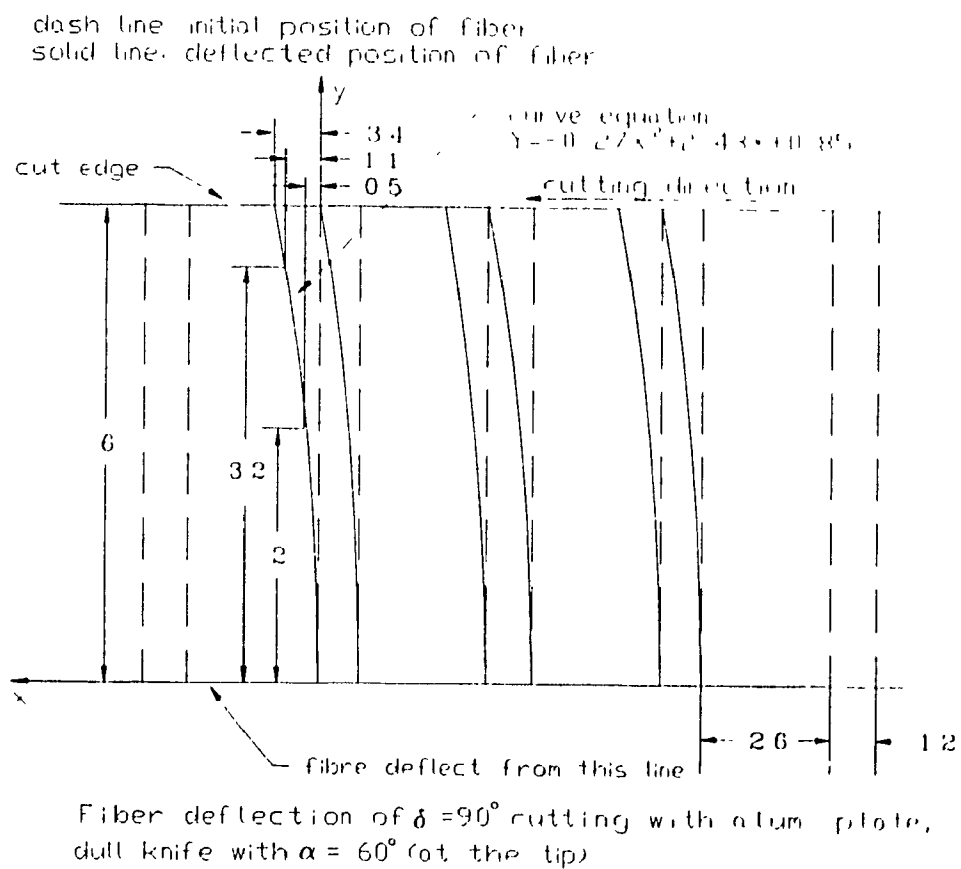 dash line initial position of fiber
solid line, deflected position of fiber
y
curve equation
3 4
1 1
cut edge
0 5
cutting direction
6
3 2
2
x
2 6
1 2
fibre deflect from this line
Fiber deflection of δ =90° cutting with alum plate,
dull knife with α = 60° (at the tip)